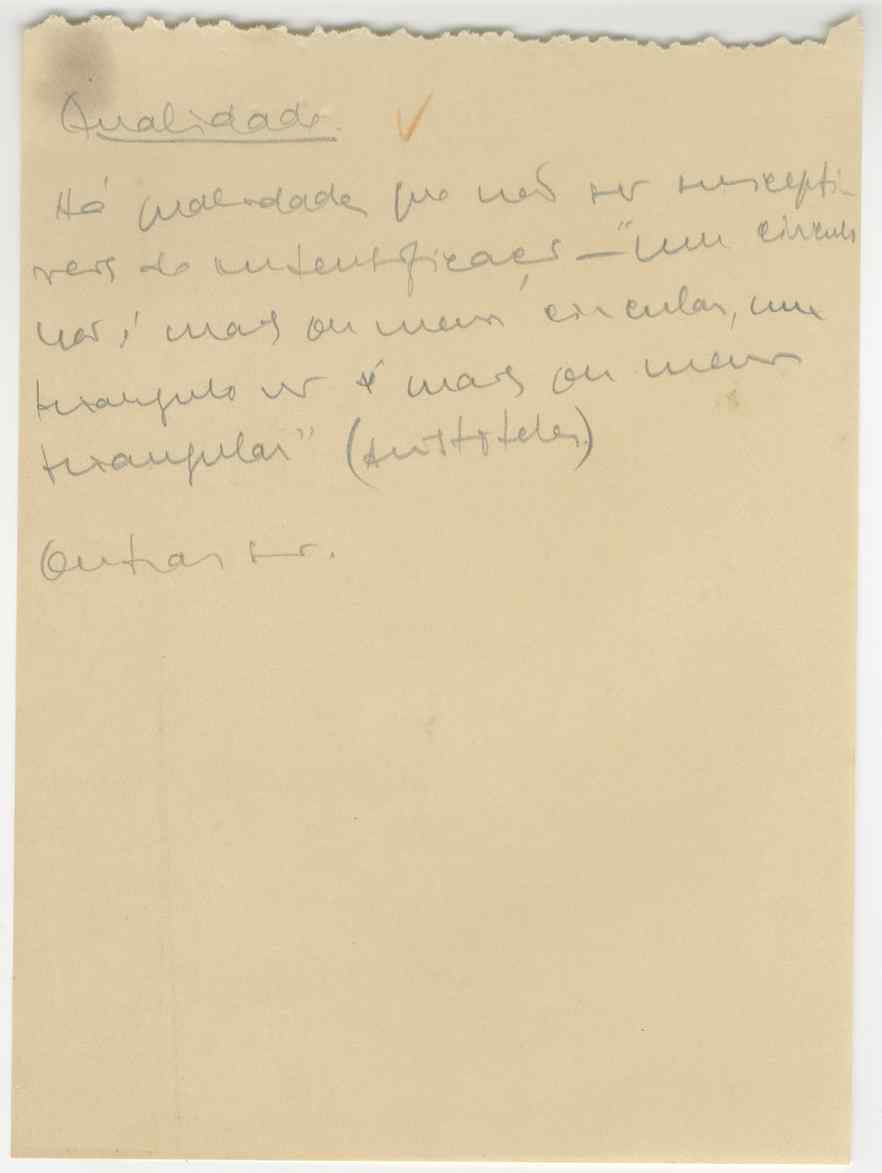 Qualidade.
Há qualidades que não são suscepti-
veis de intensificação — "um círculo
não é mais ou menos circular, um
triangulo não é mais ou menos
triangular" (Aristoteles.)
Outras são.